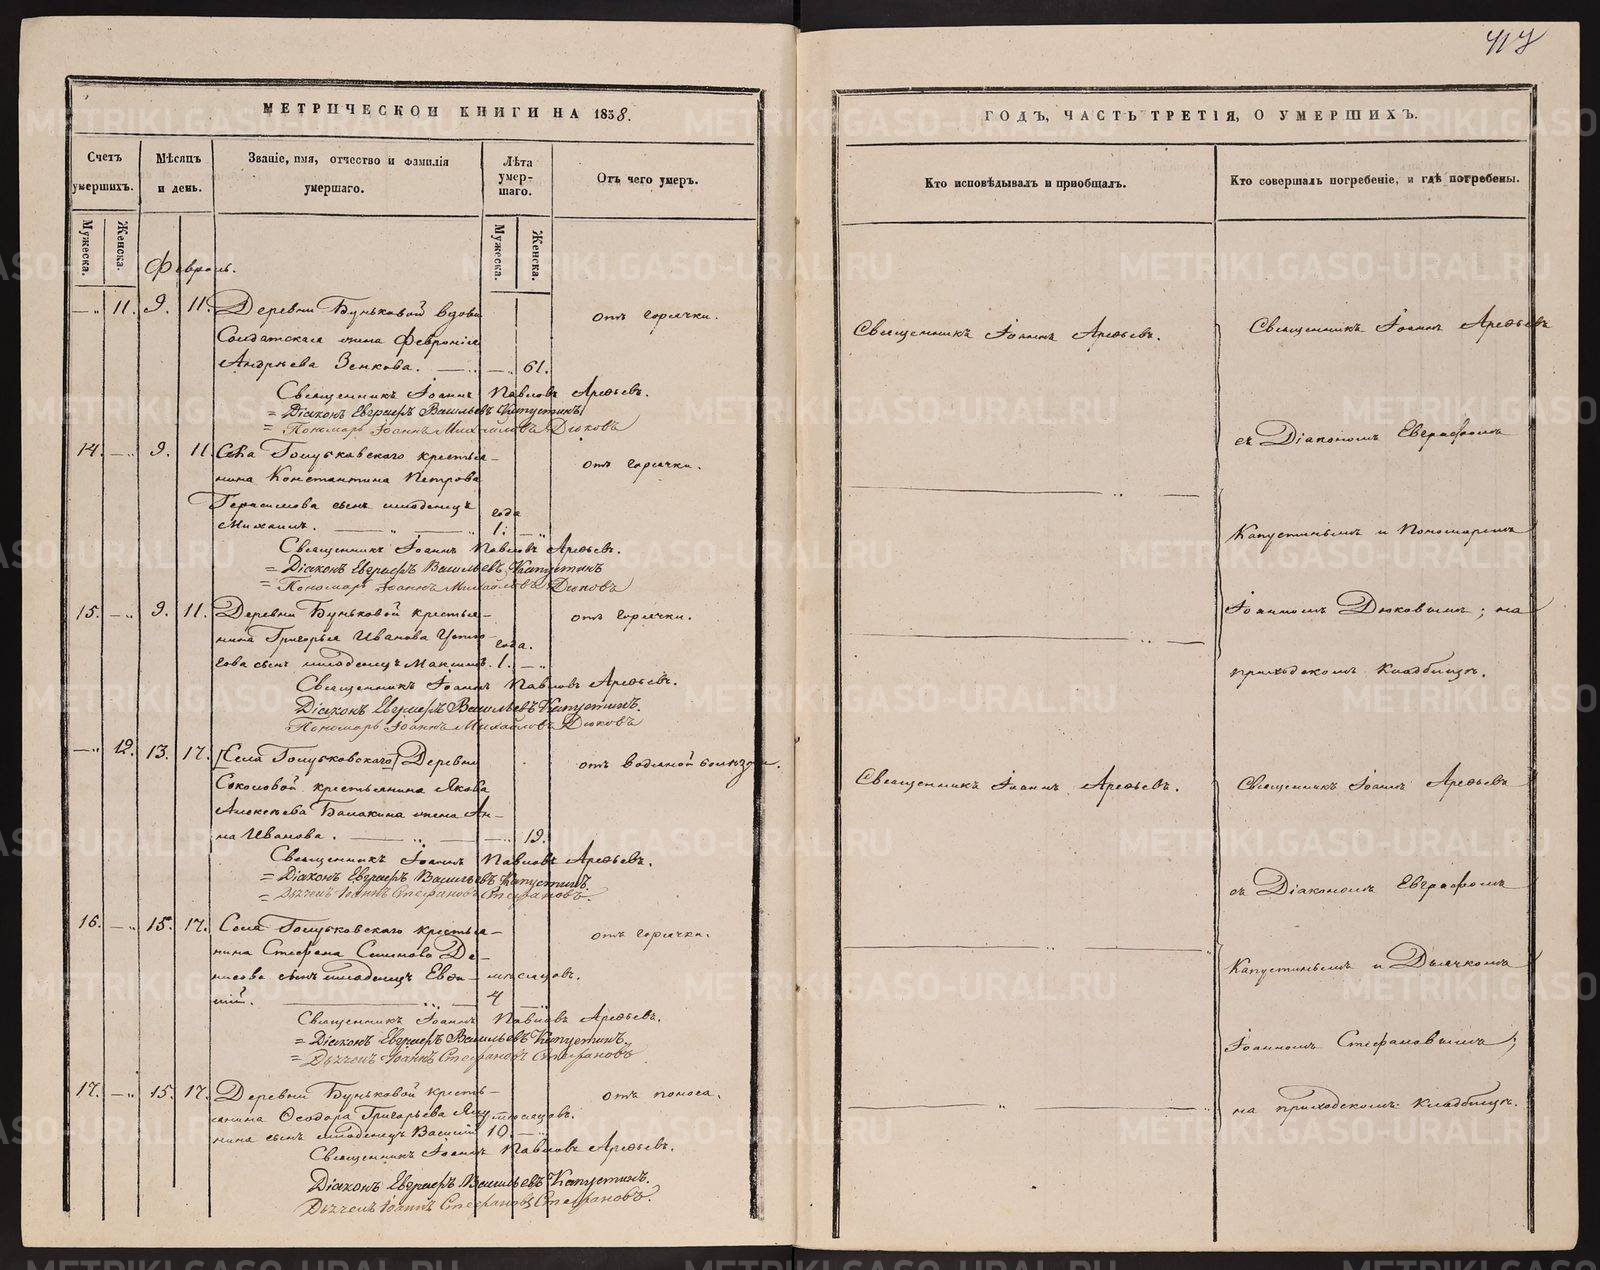 417
МЕТРИЧЕСКОЙ КНИГИ НА 1858.
Счетъ умершихъ.
Мужеска.
Женска.
Мѣсяцъ и день.
Званіе, имя, отчество и фамилія умершаго.
Лѣта умер-
шаго.
Мужеска.
Женска.
Отъ чего умеръ.
Февраль.
— „ 11. 9. 11. Деревни Буньковой вдова отъ горячки.
Солдатская жена Февронія
Андрѣева Зенкова. — „ — „ 61.
Священникъ Іоаннъ Павловъ Арефьевъ.
= Діаконъ Евграфъ Васильевъ Капустинъ
= Пономарь Іоаннъ Михайловъ Дюковъ
14. — „ 9. 11. Села Голубковскаго крестья- отъ горячки.
нина Константина Петрова
Герасимова сынъ младенецъ года
Михаилъ. — „ — 1. — „
Священникъ Іоаннъ Павловъ Арефьевъ.
= Діаконъ Евграфъ Васильевъ Капустинъ
= Пономарь Іоаннъ Михайловъ Дюковъ
15. — „ 9. 11. Деревни Буньковой крестья- отъ горячки.
нина Григорья Иванова года.
сынъ младенецъ Максимъ. 1. — „
Священникъ Іоаннъ Павловъ Арефьевъ.
Діаконъ Евграфъ Васильевъ Капустинъ.
Пономарь Іоаннъ Михайловъ Дюковъ
— „ 12. 13. 17. [Села Голубковскаго] Деревни отъ водяной болѣзни.
Соколовой крестьянина Якова
Алексѣева Балакина жена Ан-
на Иванова. — „ — „ 19.
Священникъ Іоаннъ Павловъ Арефьевъ.
= Діаконъ Евграфъ Васильевъ Капустинъ.
= Дьячекъ Іоаннъ Стефановъ Стефановъ.
16. — „ 15. 17. Села Голубковскаго крестья- отъ горячки.
нина Стефана Семенова Де-
нисова сынъ младенецъ Евѳи- мѣсяцовъ.
мій. — „ — 4 — „
Священникъ Іоаннъ Павловъ Арефьевъ.
= Діаконъ Евграфъ Васильевъ Капустинъ.
= Дьячекъ Іоаннъ Стефановъ Стефановъ
17. — „ 15. 17. Деревни Буньковой кресть- отъ поноса.
янина Ѳеодора Григорьева мѣсяцовъ.
нина сынъ младенецъ Василій 10. — „
Священникъ Іоаннъ Павловъ Арефьевъ.
Діаконъ Евграфъ Васильевъ Капустинъ.
Дьячекъ Іоаннъ Стефановъ Стефановъ.
ГОДЪ, ЧАСТЬ ТРЕТІЯ, О УМЕРШИХЪ.
Кто исповѣдывалъ и пріобщалъ.
Кто совершалъ погребеніе, и гдѣ погребены.
Священникъ Іоаннъ Арефьевъ.
Священникъ Іоаннъ Арефьевъ
съ Діакономъ Евграфомъ
Капустинымъ и Пономаремъ
Іоанномъ Дюковымъ; на
приходскомъ кладбищѣ.
Священникъ Іоаннъ Арефьевъ.
Священникъ Іоаннъ Арефьевъ
съ Діакономъ Евграфомъ
Капустинымъ и Дьячкомъ
Іоанномъ Стефановымъ;
на приходскомъ кладбищѣ.
METRIKI.GASO-URAL.RU